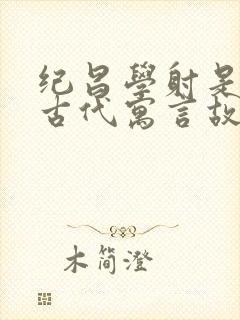 纪昌學射是
古代寓言故
木简澄